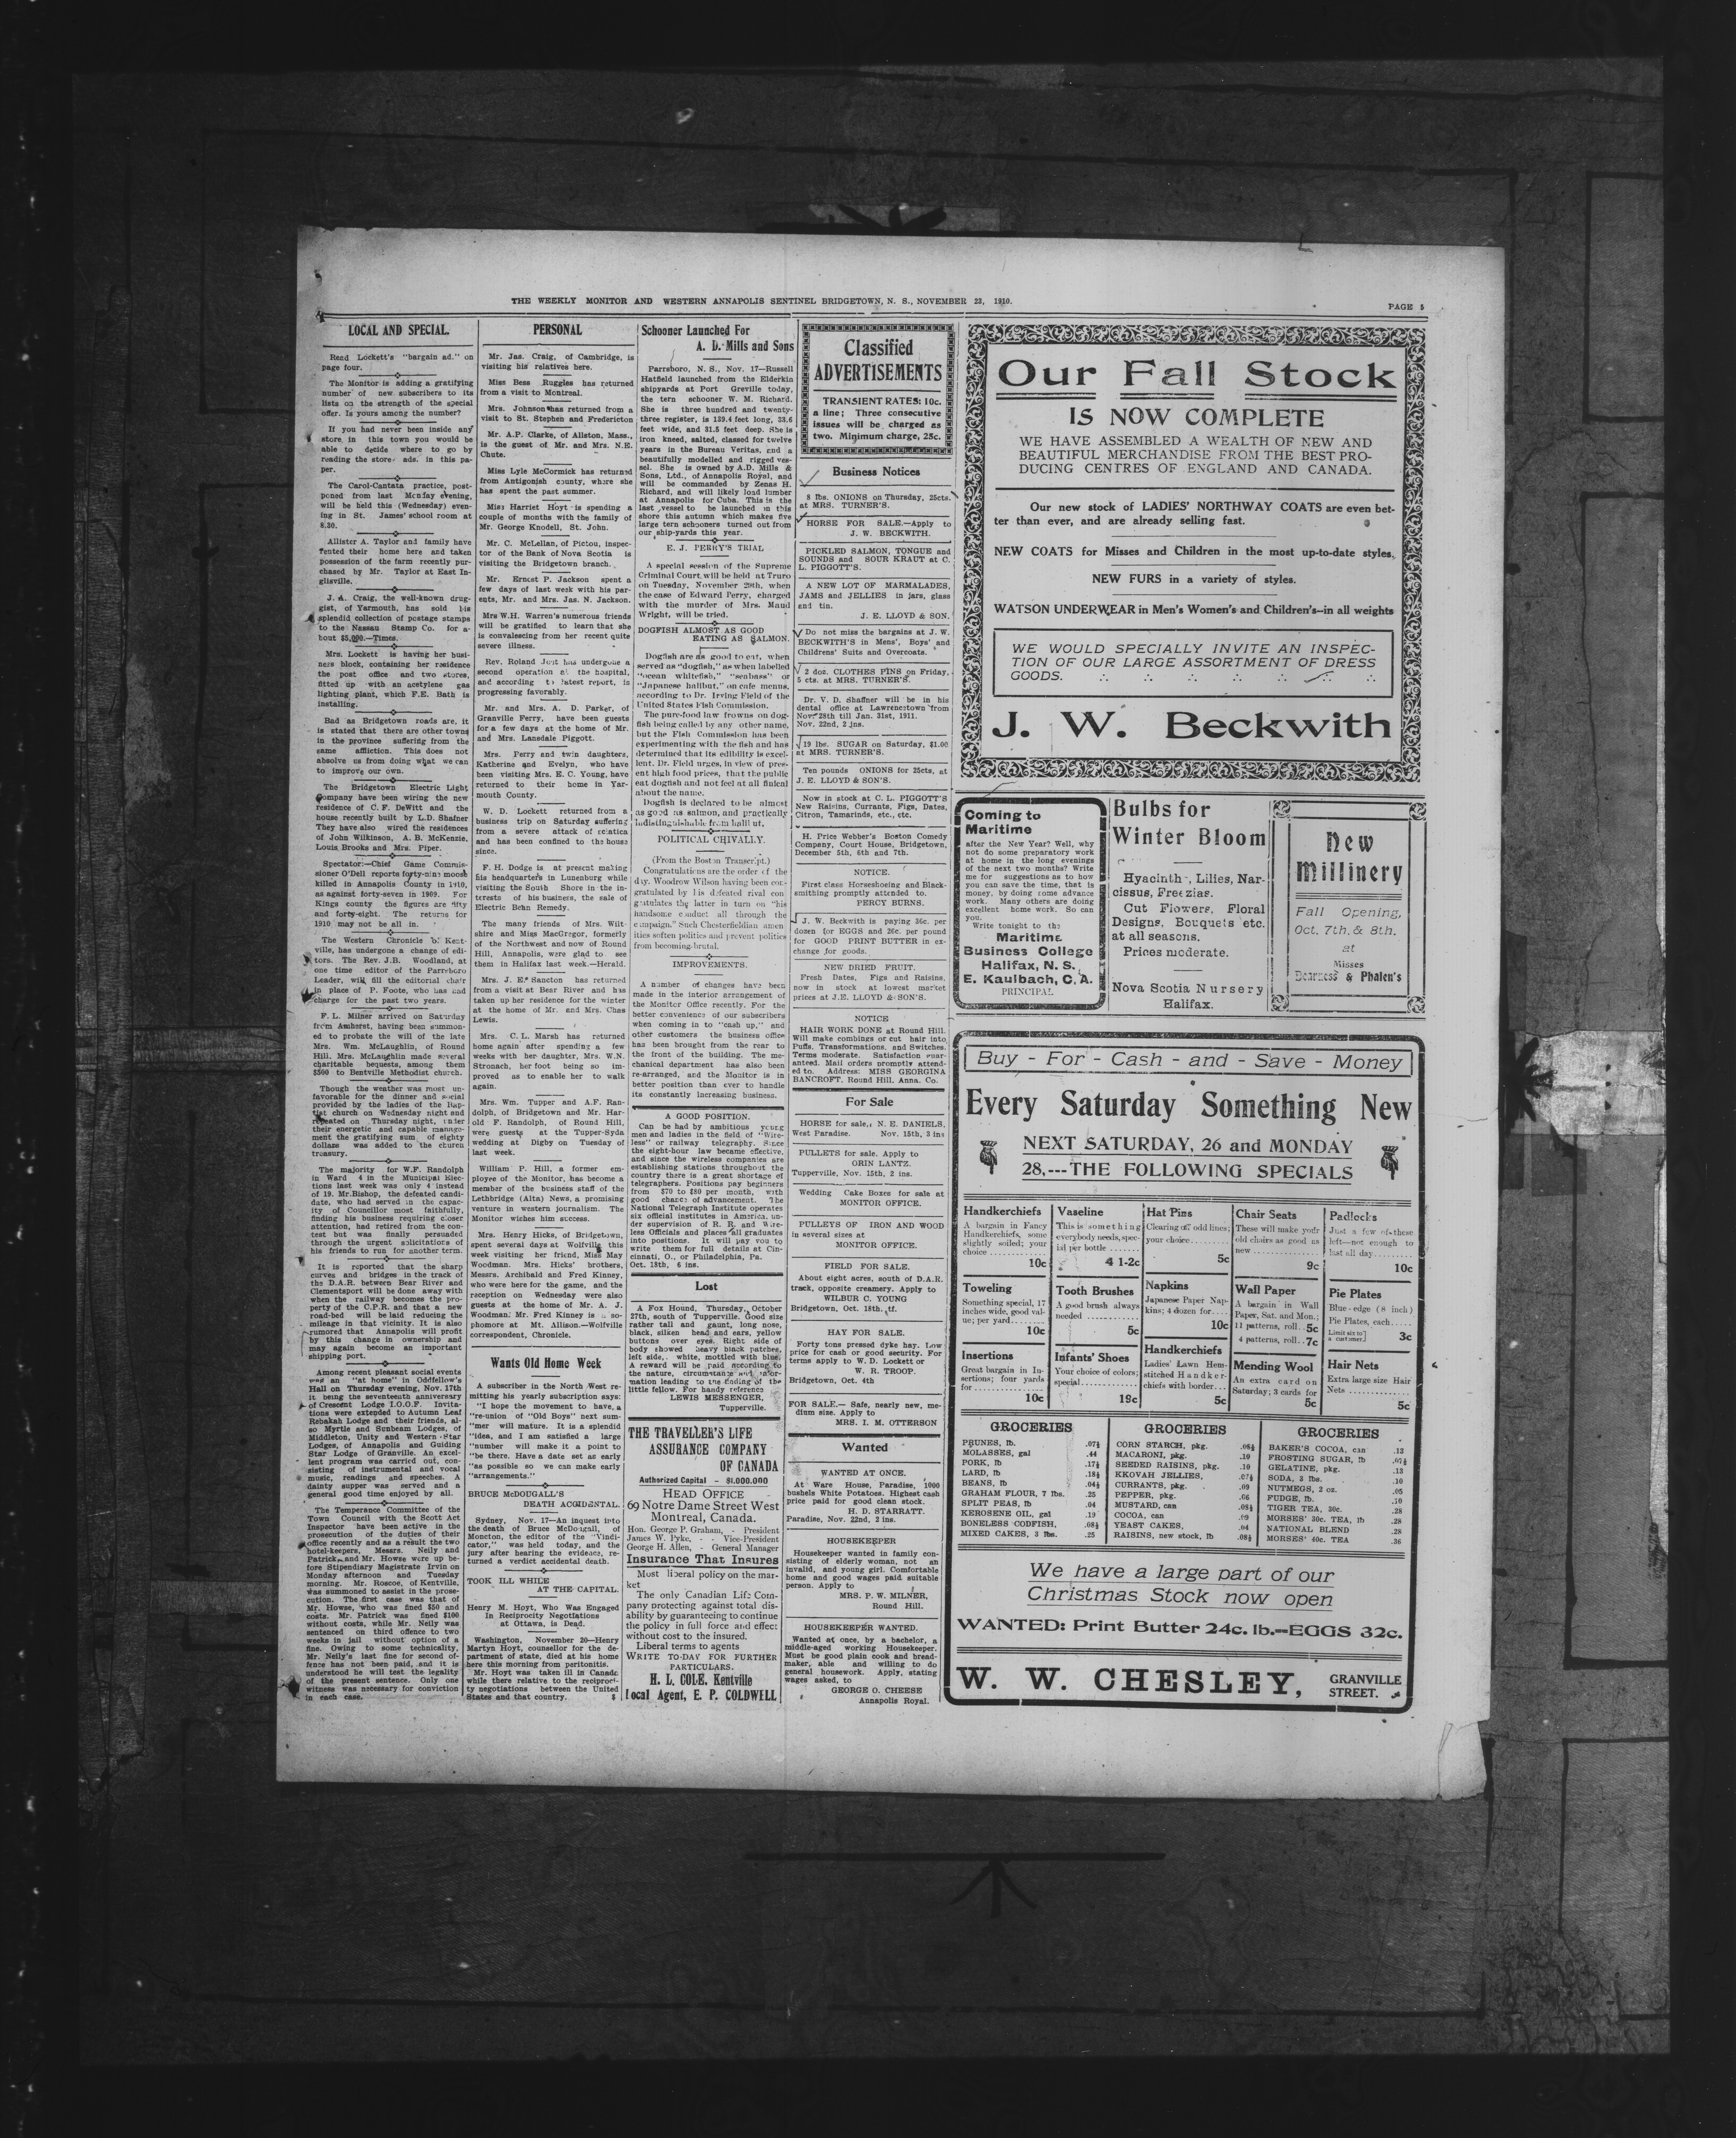 THE WEEKLY MONITOR AND WESTERN ANNAPOLIS SENTINEL BRIDGETOWN, N. S., NOVEMBER 23, 1910.
PAGE 5
LOCAL AND SPECIAL.
Read Lockett's "bargain ad." on
page four.
The Monitor is adding a gratifying
number of new subscribers to its
lists on the strength of the special
offer. Is yours among the number?
If you had never been inside any
store in this town you would be
able to decide where to go by
reading the store ads. in this pa-
per.
The Carol-Cantata practice, post-
poned from last Monday evening,
will be held this (Wednesday) even-
ing in St. James' school room at
8.30.
Allister A. Taylor and family have
rented their home here and taken
possession of the farm recently pur-
chased by Mr. Taylor at East In-
glisville.
J. A. Craig, the well-known drug-
gist, of Yarmouth, has sold his
splendid collection of postage stamps
to the Nassau Stamp Co. for a-
bout $5,000.—Times.
Mrs. Lockett is having her busi-
ness block, containing her residence
the post office and two stores,
fitted up with an acetylene gas
lighting plant, which F.E. Bath is
installing.
Bad as Bridgetown roads are, it
is stated that there are other towns
in the province suffering from the
same affliction. This does not
absolve us from doing what we can
to improve our own.
The Bridgetown Electric Light
Company have been wiring the new
residence of C. F. DeWitt and the
house recently built by L.D. Shafner
They have also wired the residences
of John Wilkinson, A. B. McKenzie,
Louis Brooks and Mrs. Piper.
Spectator:—Chief Game Commis-
sioner O'Dell reports forty-nine moose
killed in Annapolis County in 1910,
as against forty-seven in 1909. For
Kings county the figures are fifty
and forty-eight. The returns for
1910 may not be all in.
The Western Chronicle of Kent-
ville, has undergone a change of edi-
tors. The Rev. J.B. Woodland, at
one time editor of the Parrsboro
Leader, will fill the editorial chair
in place of P. Foote, who has had
charge for the past two years.
F. L. Milner arrived on Saturday
from Amherst, having been summon-
ed to probate the will of the late
Mrs. Wm. McLaughlin, of Round
Hill. Mrs. McLaughlin made several
charitable bequests, among them
$500 to Bentville Methodist church.
Though the weather was most un-
favorable for the dinner and social
provided by the ladies of the Bap-
tist church on Wednesday night and
repeated on Thursday night, under
their energetic and capable manage-
ment the gratifying sum of eighty
dollars was added to the church
treasury.
The majority for W.F. Randolph
in Ward 4 in the Municipal Elec-
tions last week was only 4 instead
of 19. Mr. Bishop, the defeated candi-
date, who had served in the capac-
ity of Councillor most faithfully,
finding his business requiring closer
attention, had retired from the con-
test but was finally persuaded
through the urgent solicitations of
his friends to run for another term.
It is reported that the sharp
curves and bridges in the track of
the D.A.R. between Bear River and
Clementsport will be done away with
when the railway becomes the pro-
perty of the C.P.R. and that a new
road-bed will be laid reducing the
mileage in that vicinity. It is also
rumored that Annapolis will profit
by this change in ownership and
may again become an important
shipping port.
Among recent pleasant social events
was an "at home" in Oddfellow's
Hall on Thursday evening, Nov. 17th
it being the seventeenth anniversary
of Crescent Lodge I.O.O.F. Invita-
tions were extended to Autumn Leaf
Rebakah Lodge and their friends, al-
so Myrtle and Sunbeam Lodges, of
Middleton, Unity and Western Star
Lodges, of Annapolis and Guiding
Star Lodge of Granville. An excel-
lent program was carried out, con-
sisting of instrumental and vocal
music, readings and speeches. A
dainty supper was served and a
general good time enjoyed by all.
The Temperance Committee of the
Town Council with the Scott Act
Inspector have been active in the
prosecution of the duties of their
office recently and as a result the two
hotel-keepers, Messrs. Neily and
Patrick, and Mr. Howse were up be-
fore Stipendiary Magistrate Irvin on
Monday afternoon and Tuesday
morning. Mr. Roscoe, of Kentville,
was summoned to assist in the prose-
cution. The first case was that of
Mr. Howse, who was fined $50 and
costs. Mr. Patrick was fined $100
without costs, while Mr. Neily was
sentenced on third offence to two
weeks in jail without option of a
fine. Owing to some technicality,
Mr. Neily's last fine for second of-
fence has not been paid, and it is
understood he will test the legality
of the present sentence. Only one
witness was necessary for conviction
in each case.
PERSONAL
Mr. Jas. Craig, of Cambridge, is
visiting his relatives here.
Miss Bess Ruggles has returned
from a visit to Montreal.
Mrs. Johnson has returned from a
visit to St. Stephen and Fredericton
Mr. A.P. Clarke, of Allston, Mass.,
is the guest of Mr. and Mrs. N.E.
Chute.
Miss Lyle McCormick has returned
from Antigonish county, where she
has spent the past summer.
Miss Harriet Hoyt is spending a
couple of months with the family of
Mr. George Knodell, St. John.
Mr. C. McLellan, of Pictou, inspec-
tor of the Bank of Nova Scotia is
visiting the Bridgetown branch.
Mr. Ernest P. Jackson spent a
few days of last week with his par-
ents, Mr. and Mrs. Jas. N. Jackson.
Mrs W.H. Warren's numerous friends
will be gratified to learn that she
is convalescing from her recent quite
severe illness.
Rev. Roland Jost has undergone a
second operation at the hospital,
and according to latest report, is
progressing favorably.
Mr. and Mrs. A. D. Parker, of
Granville Ferry, have been guests
for a few days at the home of Mr.
and Mrs. Lansdale Piggott.
Mrs. Perry and twin daughters,
Katherine and Evelyn, who have
been visiting Mrs. E. C. Young, have
returned to their home in Yar-
mouth County.
W. D. Lockett returned from a
business trip on Saturday suffering
from a severe attack of sciatica
and has been confined to the house
since.
F. H. Dodge is at present making
his headquarters in Lunenburg while
visiting the South Shore in the in-
terests of his business, the sale of
Electric Bean Remedy.
The many friends of Mrs. Wilt-
shire and Miss MacGregor, formerly
of the Northwest and now of Round
Hill, Annapolis, were glad to see
them in Halifax last week.—Herald.
Mrs. J. E. Sancton has returned
from a visit at Bear River and has
taken up her residence for the winter
at the home of Mr. and Mrs. Chas
Lewis.
Mrs. C. L. Marsh has returned
home again after spending a few
weeks with her daughter, Mrs. W.N.
Stronach, her foot being so im-
proved as to enable her to walk
again.
Mrs. Wm. Tupper and A.F. Ran-
dolph, of Bridgetown and Mr. Har-
old F. Randolph, of Round Hill,
were guests at the Tupper-Syda
wedding at Digby on Tuesday of
last week.
William P. Hill, a former em-
ployee of the Monitor, has become a
member of the business staff of the
Lethbridge (Alta) News, a promising
venture in western journalism. The
Monitor wishes him success.
Mrs. Henry Hicks, of Bridgetown,
spent several days at Wolfville this
week visiting her friend, Miss May
Woodman. Mrs. Hicks' brothers,
Messrs. Archibald and Fred Kinney,
who were here for the game, and the
reception on Wednesday were also
guests at the home of Mr. A. J.
Woodman. Mr. Fred Kinney is a so-
phomore at Mt. Allison.—Wolfville
correspondent, Chronicle.
Wants Old Home Week
A subscriber in the North West re-
mitting his yearly subscription says:
"I hope the movement to have, a
"re-union of "Old Boys" next sum-
"mer will mature. It is a splendid
"idea, and I am satisfied a large
"number will make it a point to
"be there. Have a date set as early
"as possible so we can make early
"arrangements."
BRUCE McDOUGALL'S
DEATH ACCIDENTAL.
Sydney, Nov. 17—An inquest into
the death of Bruce McDougall, of
Moncton, the editor of the "Vindi-
cator," was held today, and the
jury after hearing the evidence, re-
turned a verdict accidental death.
TOOK ILL WHILE
AT THE CAPITAL.
Henry M. Hoyt, Who Was Engaged
In Reciprocity Negotiations
at Ottawa, is Dead.
Washington, November 20—Henry
Martyn Hoyt, counsellor for the de-
partment of state, died at his home
here this morning from peritonitis.
Mr. Hoyt was taken ill in Canada
while there relative to the reciproci-
ty negotiations between the United
States and that country.
Schooner Launched For
A. D. Mills and Sons
Parrsboro, N. S., Nov. 17—Russell
Hatfield launched from the Elderkin
shipyards at Port Greville today,
the tern schooner W. M. Richard.
She is three hundred and twenty-
three register, is 139.4 feet long, 33.6
feet wide, and 31.5 feet deep. She is
iron kneed, salted, classed for twelve
years in the Bureau Veritas, and a
beautifully modelled and rigged ves-
sel. She is owned by A.D. Mills &
Sons, Ltd., of Annapolis Royal, and
will be commanded by Zenas H.
Richard, and will likely load lumber
at Annapolis for Cuba. This is the
last vessel to be launched in this
shore this autumn which makes five
large tern schooners turned out from
our ship-yards this year.
E. J. PERRY'S TRIAL
A special session of the Supreme
Criminal Court will be held at Truro
on Tuesday, November 29th, when
the case of Edward Perry, charged
with the murder of Mrs. Maud
Wright, will be tried.
DOGFISH ALMOST AS GOOD
EATING AS SALMON.
Dogfish are as good to eat, when
served as "dogfish," as when labelled
"ocean whitefish," "seabass" or
"Japanese halibut," on cafe menus,
according to Dr. Irving Field of the
United States Fish Commission.
The pure-food law frowns on dog-
fish being called by any other name,
but the Fish Commission has been
experimenting with the fish and has
determined that its edibility is excel-
lent. Dr. Field urges, in view of pres-
ent high food prices, that the public
eat dogfish and not feel at all finical
about the name.
Dogfish is declared to be almost
as good as salmon, and practically
indistinguishable from halibut.
POLITICAL CHIVALLY.
(From the Boston Transcript.)
Congratulations are the order of the
day. Woodrow Wilson having been con-
gratulated by his defeated rival con-
gratulates the latter in turn on "his
handsome conduct all through the
campaign." Such Chesterfieldian amen
ities soften politics and prevent politics
from becoming brutal.
IMPROVEMENTS.
A number of changes have been
made in the interior arrangement of
the Monitor Office recently. For the
better convenience of our subscribers
when coming in to "cash up," and
other customers the business office
has been brought from the rear to
the front of the building. The me-
chanical department has also been
re-arranged, and the Monitor is in
better position than ever to handle
its constantly increasing business.
A GOOD POSITION.
Can be had by ambitious young
men and ladies in the field of "Wire-
less" or railway telegraphy. Since
the eight-hour law became effective,
and since the wireless companies are
establishing stations throughout the
country there is a great shortage of
telegraphers. Positions pay beginners
from $70 to $80 per month, with
good chance of advancement. The
National Telegraph Institute operates
six official institutes in America, un-
der supervision of R. R. and Wire-
less Officials and places all graduates
into positions. It will pay you to
write them for full details at Cin-
cinnati, O., or Philadelphia, Pa.
Oct. 18th, 6 ins.
Lost
A Fox Hound, Thursday, October
27th, south of Tupperville. Good size
rather tall and gaunt, long nose,
black, silken head and ears, yellow
buttons over eyes. Right side of
body showed heavy black patches,
left side, white, mottled with blue.
A reward will be paid according to
the nature, circumstance and infor-
mation leading to the finding of the
little fellow. For handy reference
LEWIS MESSENGER,
Tupperville.
THE TRAVELLER'S LIFE
ASSURANCE COMPANY
OF CANADA
Authorized Capital - $1.000.000
HEAD OFFICE
69 Notre Dame Street West
Montreal, Canada.
Hon. George P. Graham, - President
James W. Pyke, - - Vice-President
George H. Allen, - General Manager
Insurance That Insures
Must liberal policy on the mar-
ket
The only Canadian Life Com-
pany protecting against total dis-
ability by guaranteeing to continue
the policy in full force and effect
without cost to the insured.
Liberal terms to agents
WRITE TO-DAY FOR FURTHER
PARTICULARS.
H. L. COLE, Kentville
Local Agent, E. P. COLDWELL
Classified
ADVERTISEMENTS
TRANSIENT RATES: 10c.
a line; Three consecutive
issues will be charged as
two. Minimum charge, 25c.
Business Notices
8 lbs. ONIONS on Thursday, 25cts.
at MRS. TURNER'S.
HORSE FOR SALE.—Apply to
J. W. BECKWITH.
PICKLED SALMON, TONGUE and
SOUNDS and SOUR KRAUT at C.
L. PIGGOTT'S.
A NEW LOT OF MARMALADES,
JAMS and JELLIES in jars, glass
and tin.
J. E. LLOYD & SON.
Do not miss the bargains at J. W.
BECKWITH'S in Mens', Boys' and
Childrens' Suits and Overcoats.
2 doz. CLOTHES PINS on Friday,
5 cts. at MRS. TURNER'S.
Dr. V. D. Shaffner will be in his
dental office at Lawrencetown from
Nov. 28th till Jan. 31st, 1911.
Nov. 22nd, 2 ins.
19 lbs. SUGAR on Saturday, $1.00
at MRS. TURNER'S.
Ten pounds ONIONS for 25cts, at
J. E. LLOYD & SON'S.
Now in stock at C. L. PIGGOTT'S
New Raisins, Currants, Figs, Dates,
Citron, Tamarinds, etc., etc.
H. Price Webber's Boston Comedy
Company, Court House, Bridgetown,
December 5th, 6th and 7th.
NOTICE.
First class Horseshoeing and Black-
smithing promptly attended to.
PERCY BURNS.
J. W. Beckwith is paying 36c. per
dozen for EGGS and 26c. per pound
for GOOD PRINT BUTTER in ex-
change for goods.
NEW DRIED FRUIT.
Fresh Dates, Figs and Raisins,
now in stock at lowest market
prices at J.E. LLOYD & SON'S.
NOTICE
HAIR WORK DONE at Round Hill.
Will make combings or cut hair into
Puffs, Transformations, and Switches.
Terms moderate. Satisfaction guar-
anteed. Mail orders promptly attend-
ed to. Address: MISS GEORGINA
BANCROFT, Round Hill, Anna. Co.
For Sale
HORSE for sale, N. E. DANIELS,
West Paradise. Nov. 15th, 3 ins
PULLETS for sale. Apply to
ORIN LANTZ.
Tupperville, Nov. 15th, 2 ins.
Wedding Cake Boxes for sale at
MONITOR OFFICE.
PULLEYS OF IRON AND WOOD
in several sizes at
MONITOR OFFICE.
FIELD FOR SALE.
About eight acres, south of D.A.R.
track, opposite creamery. Apply to
WILBUR C. YOUNG
Bridgetown, Oct. 18th. tf.
HAY FOR SALE.
Forty tons pressed dyke hay. Low
price for cash or good security. For
terms apply to W. D. Lockett or
W. R. TROOP.
Bridgetown, Oct. 4th
FOR SALE.— Safe, nearly new, me-
dium size. Apply to
MRS. I. M. OTTERSON
Wanted
WANTED AT ONCE.
At Ware House, Paradise, 1000
bushels White Potatoes. Highest cash
price paid for good clean stock.
H. D. STARRATT.
Paradise, Nov. 22nd, 2 ins.
HOUSEKEEPER
Housekeeper wanted in family con-
sisting of elderly woman, not an
invalid, and young girl. Comfortable
home and good wages paid suitable
person. Apply to
MRS. P. W. MILNER,
Round Hill.
HOUSEKEEPER WANTED.
Wanted at once, by a bachelor, a
middle-aged working Housekeeper.
Must be good plain cook and bread-
maker, able and willing to do
general housework. Apply, stating
wages asked, to
GEORGE O. CHEESE
Annapolis Royal.
Our Fall Stock
IS NOW COMPLETE
WE HAVE ASSEMBLED A WEALTH OF NEW AND
BEAUTIFUL MERCHANDISE FROM THE BEST PRO-
DUCING CENTRES OF ENGLAND AND CANADA.
Our new stock of LADIES' NORTHWAY COATS are even bet-
ter than ever, and are already selling fast.
NEW COATS for Misses and Children in the most up-to-date styles.
NEW FURS in a variety of styles.
WATSON UNDERWEAR in Men's Women's and Children's--in all weights
WE WOULD SPECIALLY INVITE AN INSPEC-
TION OF OUR LARGE ASSORTMENT OF DRESS
GOODS.
J. W. Beckwith
Coming to
Maritime
after the New Year? Well, why
not do some preparatory work
at home in the long evenings
of the next two months? Write
me for suggestions as to how
you can save the time, that is
money, by doing come advance
work. Many others are doing
excellent home work. So can
you.
Write tonight to the
Maritime
Business College
Halifax, N. S.
E. Kaulbach, C. A.
PRINCIPAL
Bulbs for
Winter Bloom
Hyacinth, Lilies, Nar-
cissus, Freezias.
Cut Flowers, Floral
Designs, Bouquets etc.
at all seasons.
Prices moderate.
Nova Scotia Nursery
Halifax.
New
Millinery
Fall Opening,
Oct. 7th. & 8th.
at
Misses
Dearness & Phalen's
Buy - For - Cash - and - Save - Money
Every Saturday Something New
NEXT SATURDAY, 26 and MONDAY
28,---THE FOLLOWING SPECIALS
Handkerchiefs
A bargain in Fancy
Handkerchiefs, some
slightly soiled; your
choice
10c
Vaseline
This is something
everybody needs, spec-
ial per bottle
4 1-2c
Hat Pins
Clearing off odd lines;
your choice
5c
Chair Seats
These will make your
old chairs as good as
new
9c
Padlocks
Just a few of these
left—not enough to
last all day
10c
Toweling
Something special, 17
inches wide, good val-
ue; per yard
10c
Tooth Brushes
A good brush always
needed
5c
Napkins
Japanese Paper Nap-
kins; 4 dozen for
10c
Wall Paper
A bargain in Wall
Paper, Sat. and Mon.;
11 patterns, roll 5c
4 patterns, roll 7c
Pie Plates
Blue-edge (8 inch)
Pie Plates, each
Limit six to
a customer
3c
Insertions
Great bargain in In-
sertions; four yards
for
10c
Infants' Shoes
Your choice of colors;
special
19c
Handkerchiefs
Ladies' Lawn Hem-
stitched Handker-
chiefs with border
5c
Mending Wool
An extra card on
Saturday; 3 cards for
5c
Hair Nets
Extra large size Hair
Nets
5c
GROCERIES
PRUNES, lb. .07½
MOLASSES, gal .44
PORK, lb .17½
LARD, lb .18½
BEANS, lb .04½
GRAHAM FLOUR, 7 lbs. .25
SPLIT PEAS, lb .04
KEROSENE OIL, gal .19
BONELESS CODFISH, .08½
MIXED CAKES, 3 lbs. .25
GROCERIES
CORN STARCH, pkg. .08½
MACARONI, pkg. .10
SEEDED RAISINS, pkg. .10
KKOVAH JELLIES, .07½
CURRANTS, pkg. .09
PEPPER, pkg. .06
MUSTARD, can .08½
COCOA, can .09
YEAST CAKES, .04
RAISINS, new stock, lb .08½
GROCERIES
BAKER'S COCOA, can .13
FROSTING SUGAR, lb .07½
GELATINE, pkg. .13
SODA, 3 lbs. .10
NUTMEGS, 2 oz. .05
FUDGE, lb. .10
TIGER TEA, 30c. .28
MORSES' 30c. TEA, lb .28
NATIONAL BLEND .28
MORSES' 40c. TEA .36
We have a large part of our
Christmas Stock now open
WANTED: Print Butter 24c. lb.--EGGS 32c.
W. W. CHESLEY,
GRANVILLE
STREET.